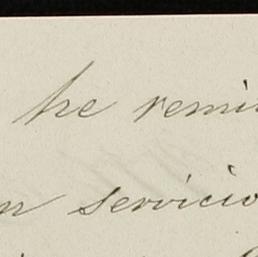 he remi
n servicio